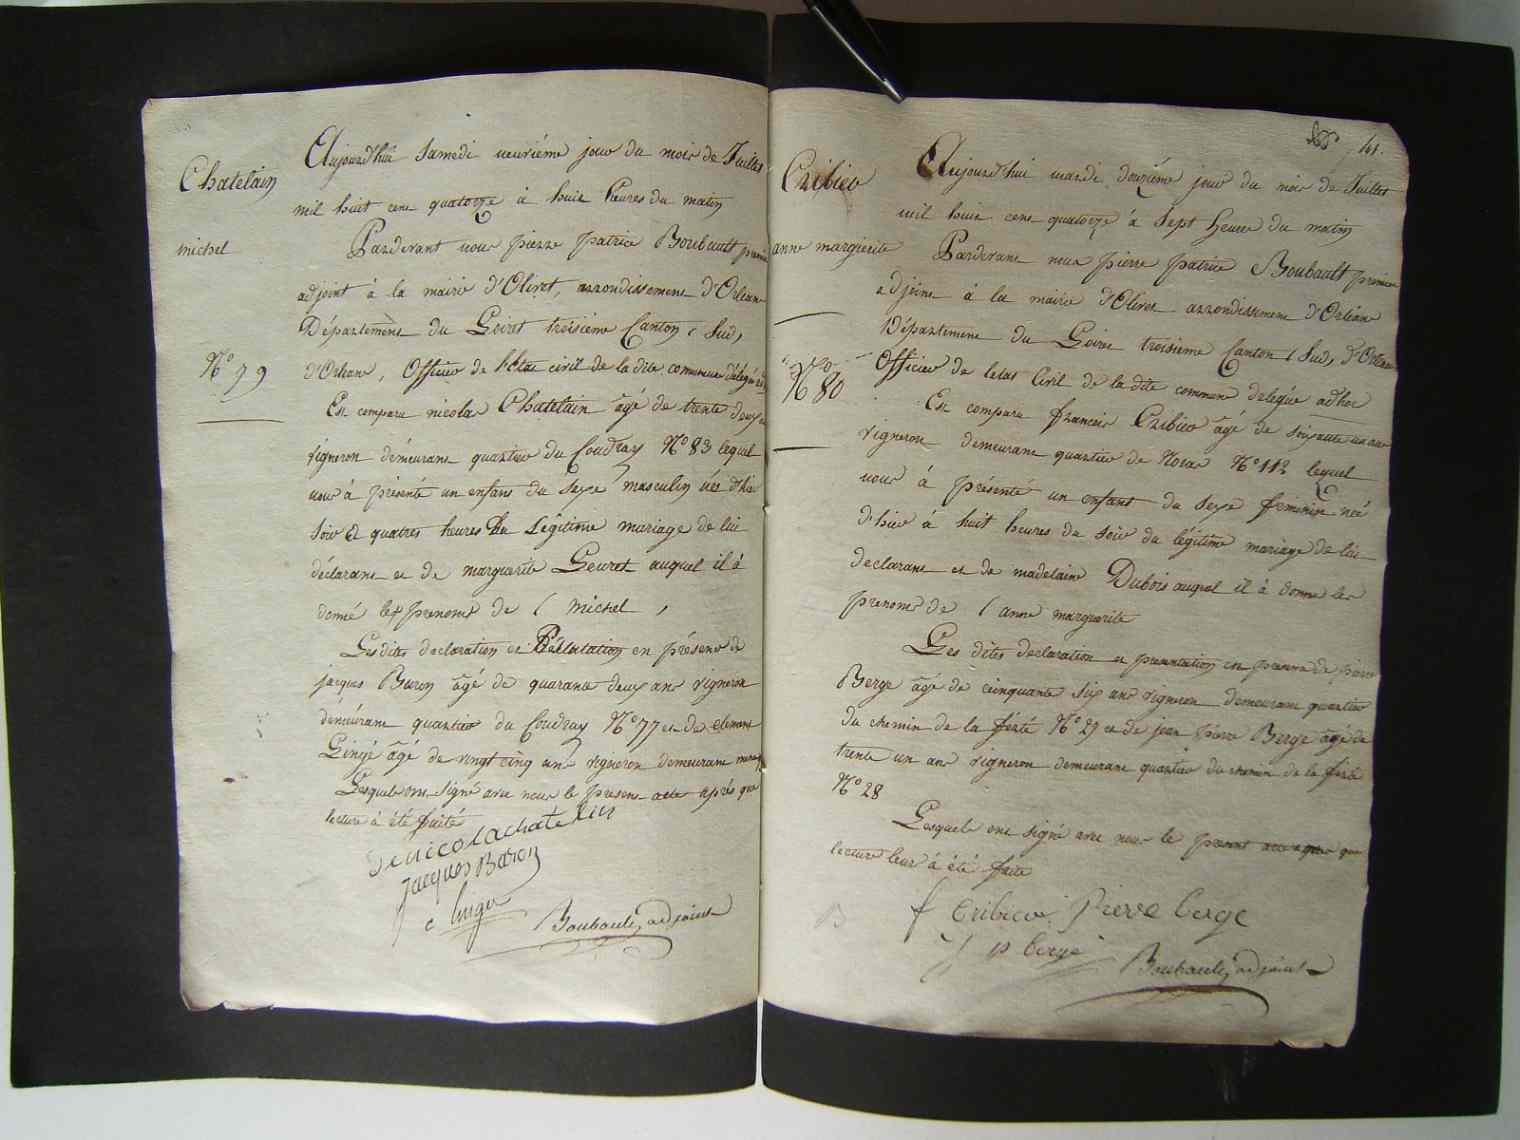 Chatelain
michel
N° 79
Aujourd'hui Samedi neuvième jour du mois de Juillet
mil huit cent quatorze à huit heures du matin
Pardevant nous pierre patrice Boubault premier
adjoint à la mairie d'Olivet, arrondissement d'Orléans
Département du Loiret troisième Canton (Sud)
d'Orléans, Officier de l'état civil de la dite commune délégué
Est comparu nicolas Chatelain âgé de trente deux
vigneron demeurant quartier du Coudray N° 83 lequel
nous à présenté un enfant du Sexe masculin née d'hier
soir à quatres heures du Légitime mariage de lui
déclarant et de marguerite Leuret auquel il à
donné les prenoms de ( michel )
Lesdites declaration et Présentation en présence de
jacques Baron âgé de quarante deux ans vigneron
demeurant quartier du Coudray N° 77 et de clement
Lingé âgé de vingt cinq ans vigneron demeurant
Lesquels ont signé avec nous le présent acte après que
lecture à été faite
nicola chatelin
jacques Baron
c linger
Boubault, adjoint
41.
Cribier
anne marguerite
N° 80
Aujourd'hui mardi douzième jour du mois de Juillet
mil huit cent quatorze à Sept heures du matin
Pardevant nous pierre patrice Boubault premier
adjoint à la mairie d'Olivet arrondissement d'Orléans
Département du Loiret troisieme Canton (Sud) d'Orléans
Officier de letat Civil de la dite commune delégué adhoc
Est comparu françois Cribier âgé de soixante un ans
vigneron demeurant quartier de N° 112 lequel
nous à présenté un enfant du Sexe féminin née
d'hier à huit heures du soir du légitime mariage de lui
declarant et de madelaine Dubois auquel il à donne les
prenoms de ( anne marguerite
Les dites declaration et presentation en presence de pierre
Berge âgé de cinquante six ans vigneron demeurant quartier
du chemin de la ferté N° 27 et de jean pierre Berge âgé de
trente un ans vigneron demeurant quartier du chemin de la ferté
N° 28
Lesquels ont signé avec nous le present acte après que
lecture leur à été faite
f Cribier Pierre Berge
j p berge
Boubault, adjoint